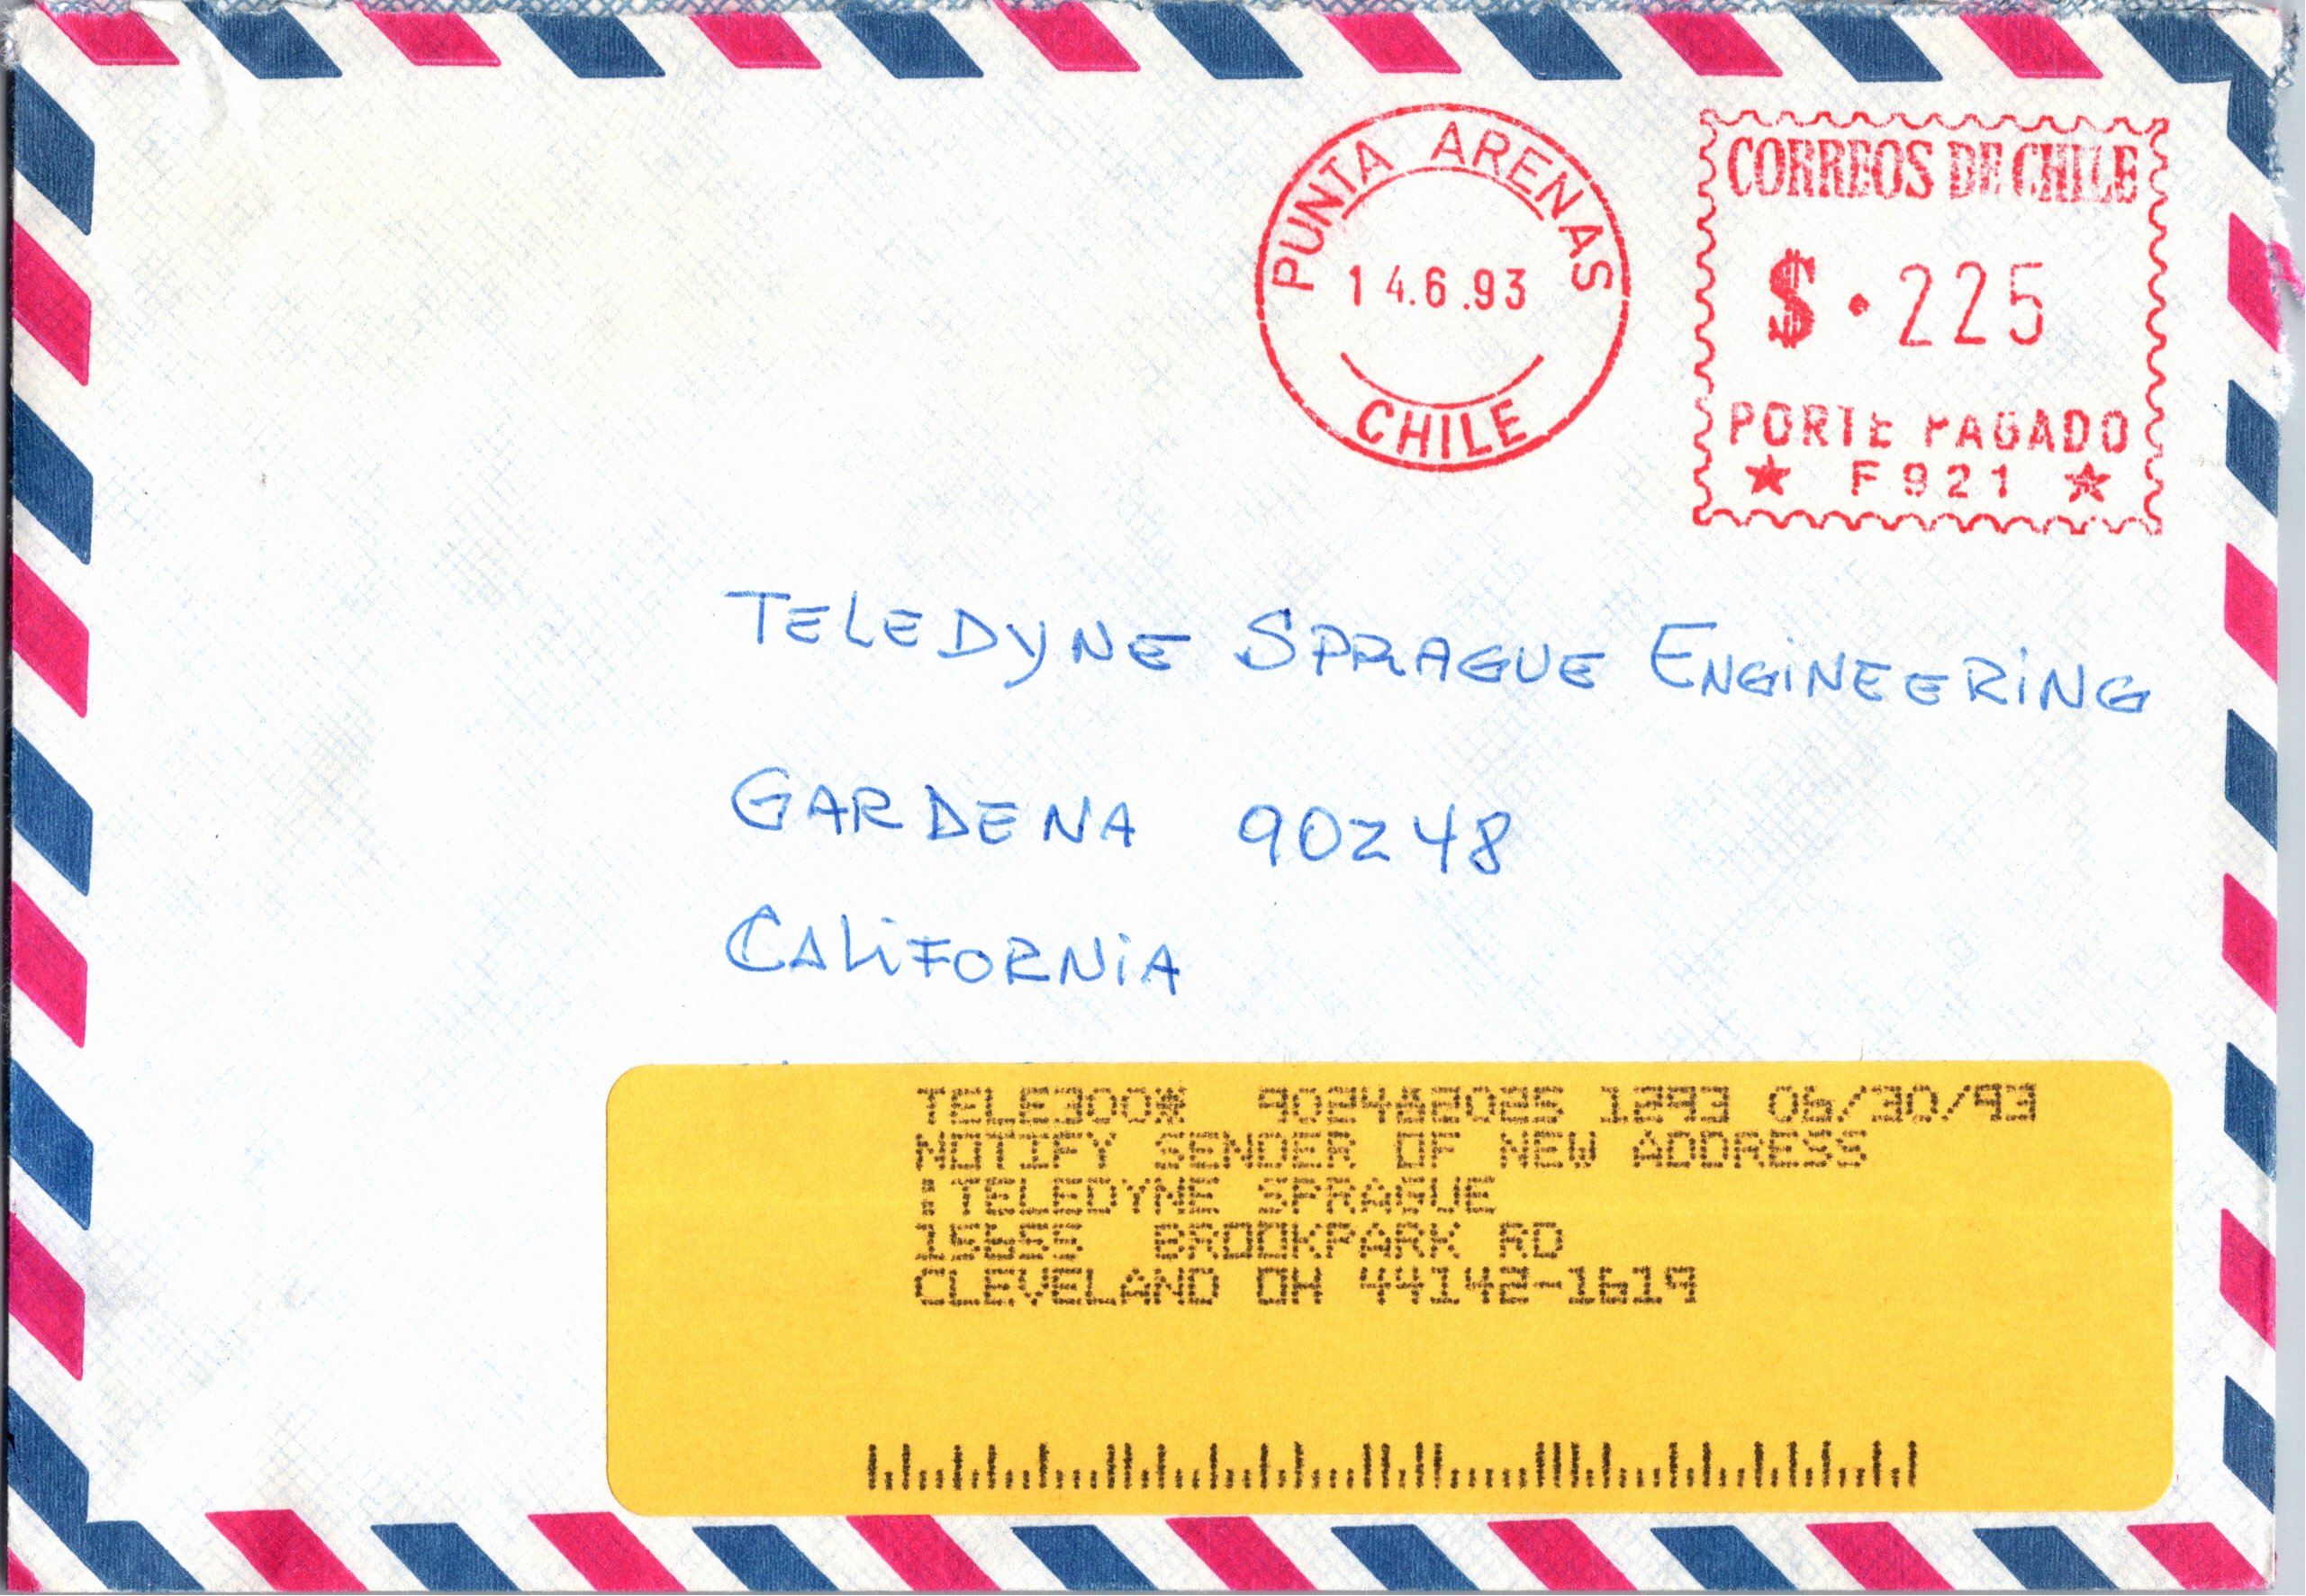 PUNTA ARENAS
14.6.93
CHILE
CORREOS DE CHILE
$ · 225
PORTE PAGADO
★ F921 ★
TELEDYNE SPRAGUE ENGINEERING
GARDENA 90248
CALIFORNIA
TELE300* 902482025 1893 06/30/93
NOTIFY SENDER OF NEW ADDRESS
:TELEDYNE SPRAGUE
15655 BROOKPARK RD
CLEVELAND OH 44142-1619